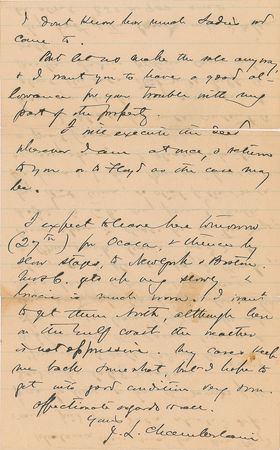 I don't know how much Sadie's wd
come to.
But let us make the sale anyway,
& I want you to have a good al-
lowance for your trouble with my
part of the property.
I will execute the deed
wherever I am at once, & return
to you or to Floyd as the case may
be.
I expect to leave here tomorrow
(27th) for Ocala, & thence by
slow stages, to New York & Boston.
Mrs C. gets up very slowly &
is much worn. I want
to get them North, although here
on the Gulf coast the weather
is not oppressive. My cares keep
me back somewhat, but I hope to
get into good condition very soon.
Affectionate regards to all.
Yours
J. L. Chamberlain